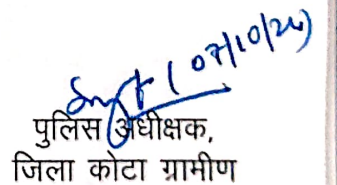 (07/10/24)
पुलिस अधीक्षक,
जिला कोटा ग्रामीण